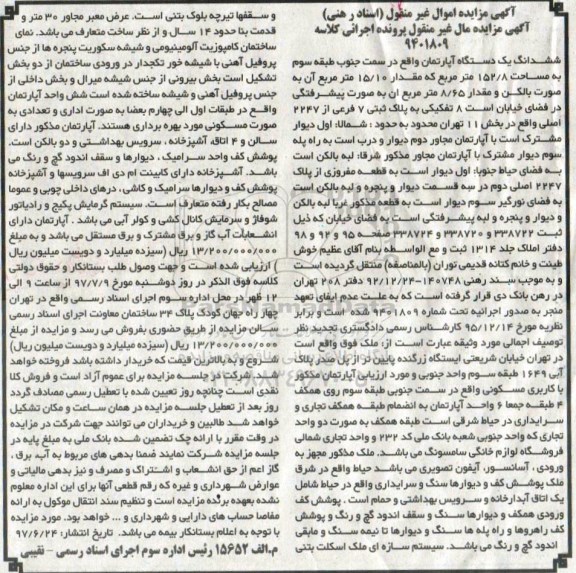 آگهی مزایده اموال غیر منقول (اسناد رهنی)
آگهی مزایده مال غیر منقول پرونده اجرائی کلاسه
۹۴۰۱۸۰۹
ششدانگ یک دستگاه آپارتمان واقع در سمت جنوب طبقه سوم
به مساحت ۱۵۲/۸ متر مربع که مقدار ۱۵/۱۰ متر مربع آن به
صورت بالکن و مقدار ۸/۶۵ متر مربع آن به صورت پیشرفتگی
در فضای خیابان است ۸ تفکیکی به پلاک ثبتی ۷ فرعی از ۲۲۴۷
اصلی واقع در بخش ۱۱ تهران محدود به حدود : شمالا: اول دیوار
مشترک است با آپارتمان مجاور دوم دیوار و درب است به راه پله
سوم دیوار مشترک با آپارتمان مجاور مذکور شرقا: لبه بالکن است
به فضای حیاط جنوبا: اول دیوار است به قطعه مفروزی از پلاک
۲۲۴۷ اصلی دوم در سه قسمت دیوار و پنجره و لبه بالکن است
به فضای نورگیر سوم دیوار است به قطعه مذکور غربا لبه بالکن
و دیوار و پنجره و لبه پیشرفتگی است به فضای خیابان که ذیل
ثبت ۳۳۸۷۲۲ و ۳۳۸۷۲۰ و ۳۳۸۷۲۴ صفحه ۹۵ و ۹۲ و ۹۸
دفتر املاک جلد ۱۳۱۴ ثبت و مع الواسطه بنام آقای عظیم خوش
طینت و خانم کتانه قدیمی توران (بالمناصفه) منتقل گردیده است
و به موجب سند رهنی ۱۴۰۷۴۸-۹۲/۱۲/۲۴ دفتر ۲۰۸ تهران
در رهن بانک دی قرار گرفته است که به علت عدم ایفای تعهد
منجر به صدور اجرائیه تحت شماره ۹۴۰۱۸۰۹ شده است و برابر
نظریه مورخ ۹۵/۱۲/۱۴ کارشناس رسمی دادگستری تجدید نظر
توصیف اجمالی مورد وثیقه عبارت است از: ملک فوق واقع است
در تهران خیابان شریعتی ایستگاه زرگنده پایین تر از یخچال پلاک
آبی ۱۶۴۹ طبقه سوم واحد جنوبی و مورد ارزیابی آپارتمان مذکور
با کاربری مسکونی واقع در سمت جنوبی طبقه سوم روی همکف
۴ طبقه جمعا ۶ واحد آپارتمان به انضمام طبقه همکف تجاری و
سرایداری در حیاط شرقی است طبقه همکف به صورت دو واحد
تجاری که واحد جنوبی شعبه بانک ملی کد ۲۳۲ و واحد تجاری شمالی
فروشگاه لوازم خانگی سامسونگ می باشد. ملک مذکور مجهز به
ورودی ، آسانسور، آیفون تصویری می باشد حیاط واقع در شرق
ملک پوشش کف و دیوارها سنگ و سرایداری واقع در حیاط شامل
یک اتاق آبدارخانه و سرویس بهداشتی و حمام است . پوشش کف
ورودی همکف و دیوارها سنگ و سقف اندود گچ و رنگ و پوشش
کف راهروها و راه پله ها سنگ و دیوارها تا نیمه سنگ و مابقی
اندود گچ و رنگ می باشد. سیستم سازه ای ملک اسکلت بتنی
و سقفها تیرچه بلوک بتنی است. عرض معبر مجاور ۳۰ متر و
قدمت بنا حدود ۱۴ سال و از نظر ساخت متعارف می باشد. نمای
ساختمان کامپوزیت آلومینیومی و شیشه سکوریت پنجره ها از جنس
پروفیل آهنی با شیشه خور تکجداره در ورودی ساختمان از دو بخش
تشکیل است بخش بیرونی از جنس شیشه میرال و بخش داخلی از
جنس پروفیل آهنی و شیشه ساخته شده است شش واحد آپارتمان
واقع در طبقات اول الی چهارم بعضا به صورت اداری و تعدادی به
صورت مسکونی مورد بهره برداری هستند. آپارتمان مذکور دارای
سالن و ۴ اتاقه آشپزخانه ، سرویس بهداشتی و دو بالکن است.
پوشش کف واحد سرامیک ، دیوارها و سقف اندود گچ و رنگ می
باشد. آشپزخانه دارای کابینت ام دی اف سرویسها و آشپزخانه
پوشش کف و دیوارها سرامیک و کاشی ، درهای داخلی چوبی و عموما
مصالح بکار رفته متعارف است. سیستم گرمایش پکیج و رادیاتور
شوفاژ و سرمایش کانال کشی و کولر آبی می باشد . آپارتمان دارای
انشعابات آب گاز و برق مشترک و برق مستقل می باشد و به مبلغ
۱۳/۲۰۰/۰۰۰/۰۰۰ ریال (سیزده میلیارد و دویست میلیون ریال
) ارزیابی شده است و جهت وصول طلب بستانکار و حقوق دولتی
کلاسه فوق الذکر در روز دوشنبه مورخ ۹۷/۷/۹ از ساعت ۹ الی
۱۲ ظهر در محل اداره سوم اجرای اسناد رسمی واقع در تهران
چهار راه جهان کودک پلاک ۳۴ ساختمان معاونت اجرای اسناد رسمی
سالن مزایده از طریق حضوری بفروش می رسد و مزایده از مبلغ
۱۳/۲۰۰/۰۰۰/۰۰۰ ریال (سیزده میلیارد و دویست میلیون ریال)
شروع و به بالاترین قیمت که خریدار داشته باشد فروخته خواهد
شد. شرکت در جلسه مزایده برای عموم آزاد است و فروش کلا
نقدی است چنانچه روز تعیین شده با تعطیل رسمی مصادف گردد
روز بعد از تعطیل جلسه مزایده در همان ساعت و مکان تشکیل
خواهد شد طالبین و خریداران می توانند جهت شرکت در مزایده
در وقت مقرر با ارائه چک تضمین شده بانک ملی به مبلغ پایه در
جلسه مزایده شرکت نمایند ضمنا بدهی های مربوط به آب، برق ،
گاز اعم از حق انشعاب و اشتراک و مصرف و نیز بدهی مالیاتی و
عوارض شهرداری و غیره که رقم قطعی آنها برای این اداره معلوم
نشده بعهده برنده مزایده است و تنظیم سند انتقال موکول به ارائه
مفاصا حساب های دارایی و شهرداری و ... خواهد بود. مورد مزایده
با توجه به اعلام بستانکار بیمه می باشد. تاریخ انتشار: ۹۷/۶/۲۴
م.الف ۱۵۶۵۲ رئیس اداره سوم اجرای اسناد رسمی - نقیبی